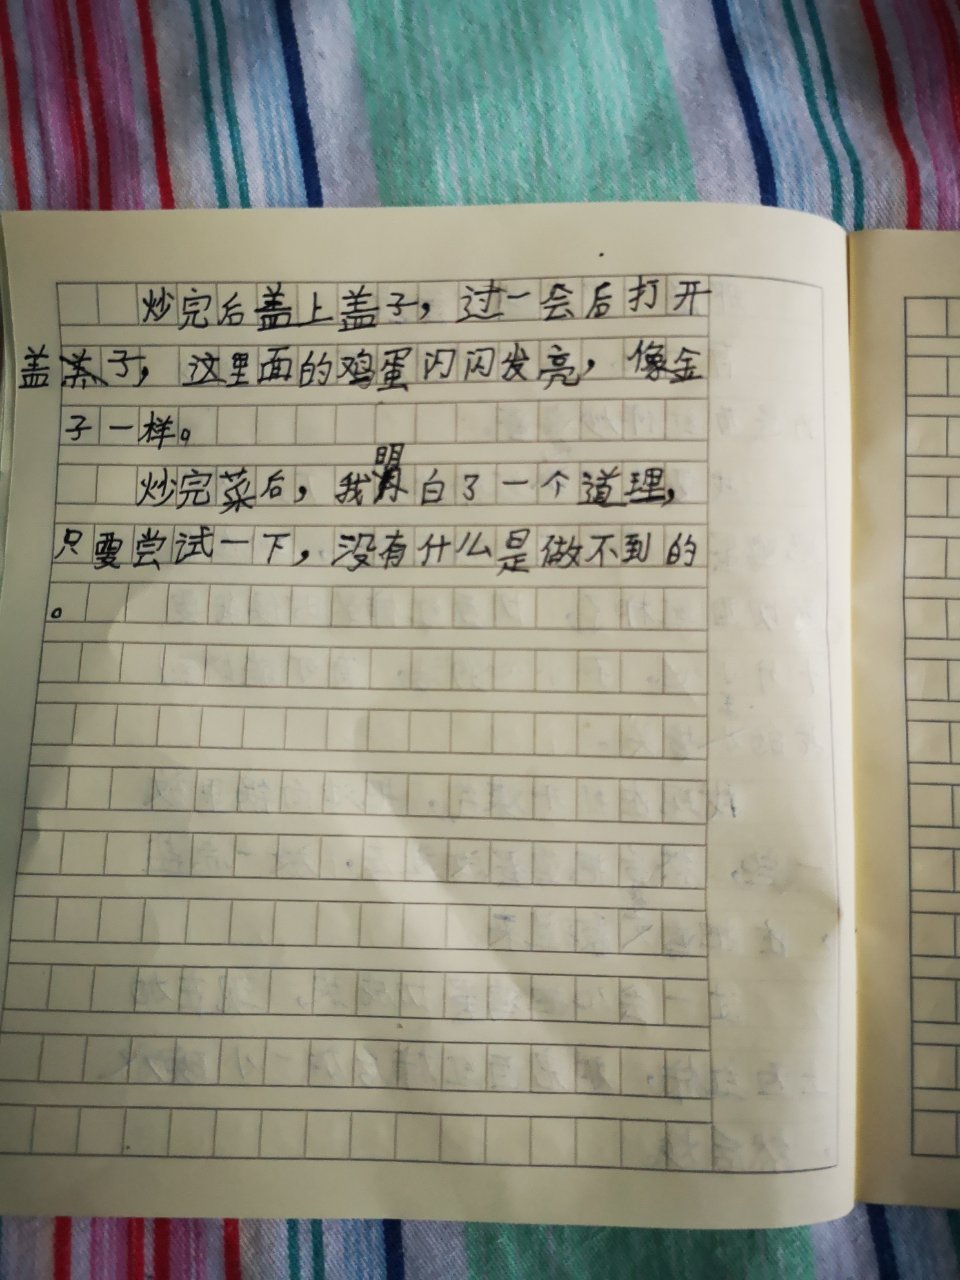 炒完后盖上盖子，过一会后打开
盖子，这里面的鸡蛋闪闪发亮，像金
子一样。
炒完菜后，我明白了一个道理，
只要尝试一下，没有什么是做不到的
。